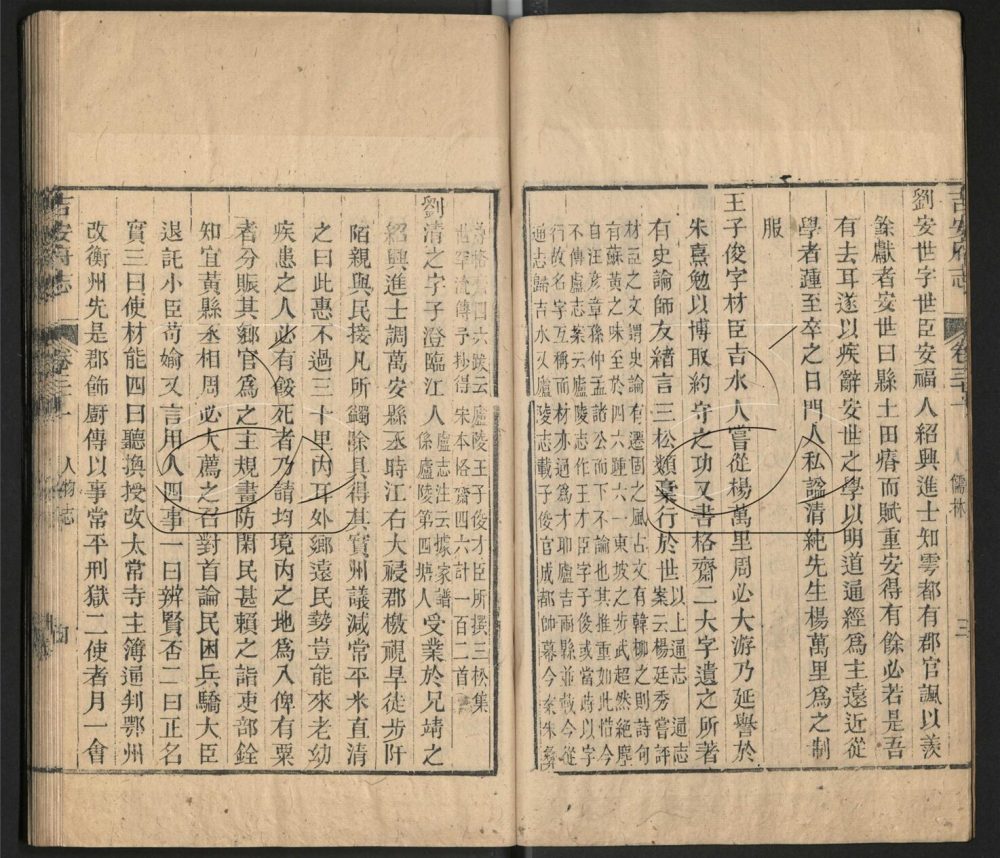 吉安府志 卷三十 人物志 儒林 三
劉安世字世臣安福人紹興進士知雩都有郡官諷以羨
餘獻者安世曰縣土田瘠而賦重安得有餘必若是吾
有去耳遂以疾辭安世之學以明道通經爲主遠近從
學者踵至卒之日門人私諡清純先生楊萬里爲之制
服
王子俊字材臣吉水人嘗從楊萬里周必大游乃延譽於
朱熹勉以博取約守之功又書格齋二大字遺之所著
有史論師友緒言三松類稾行於世以上通志 通志
案云楊廷秀嘗評
材臣之文謂史論有遷固之風占文有韓柳之則詩句
有蘇黃之味至於四六踵六一東坡之步武超然絕塵
自汪彥章孫仲益諸公而下不論也其推重如此惜今
不傳盧志案云廬陵志作王才臣字子俊後或當時以字
行故名字互稱而材亦通爲才耶廬吉兩縣並載今從
通志歸吉水又廬陵志載子俊官成都帥幕今案朱彝
尊 六跋云廬陵王子俊才臣所撰三松集
世罕 傳予抄得宋本格齋四六計一百二首
劉清之字子澄臨江人盧志注云據家譜
係廬陵第四塘人受業於兄靖之
紹興進士調萬安縣丞時江右大祲郡檄視旱徒步阡
陌親與民接凡所蠲除具得其實州議減常平米直清
之曰此惠不過三十里内耳外鄉遠民勢豈能來老幼
疾患之人必有餒死者乃請均境内之地爲八俾有粟
者分賑其鄉官爲之主規畫防閑民甚賴之詣吏部銓
知宜黃縣丞相周必大薦之召對首論民困兵驕大臣
退託小臣苟媮又言用人四事一曰辨賢否二曰正名
實三曰使材能四曰聽換授改太常寺主簿通判鄂州
改衡州先是郡飾厨傳以事常平刑獄二使者月一會
吉安府志 卷三十 人物志